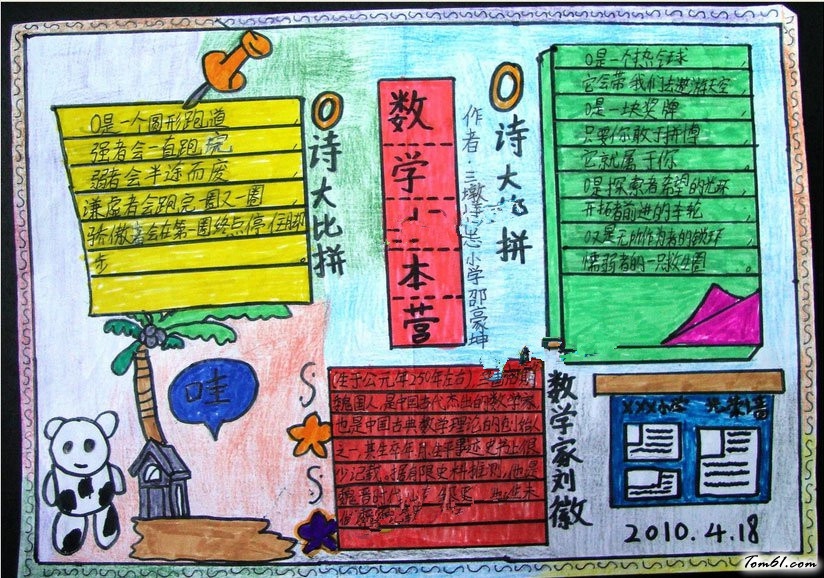 0是一个圆形跑道，
强者会一直跑完，
弱者会半途而废，
谦虚者会跑完一圈又一圈，
骄傲者会在第一圈终点停住脚
步。
0诗大比拼
数学大本营
作者：三墩
小学邵豪坤
0诗大比拼
0是一个热气球
它会带我们去遨游太空，
0是一块奖牌
只要你敢于拼搏
它就属于你
0是探索者希望的光环
开拓者前进的车轮
0又是无所作为者的
懦弱者的一只救生圈。
哇
(生于公元年250年左右)，三国
魏国人，是中国古代杰出的数学家
也是中国古典数学理论的创始人
之一，其生卒年月、生平事迹史书上很
少记载，据有限史料推测，他是
数学家刘徽
XXX小学 光荣墙
2010.4.18
Tom61.com